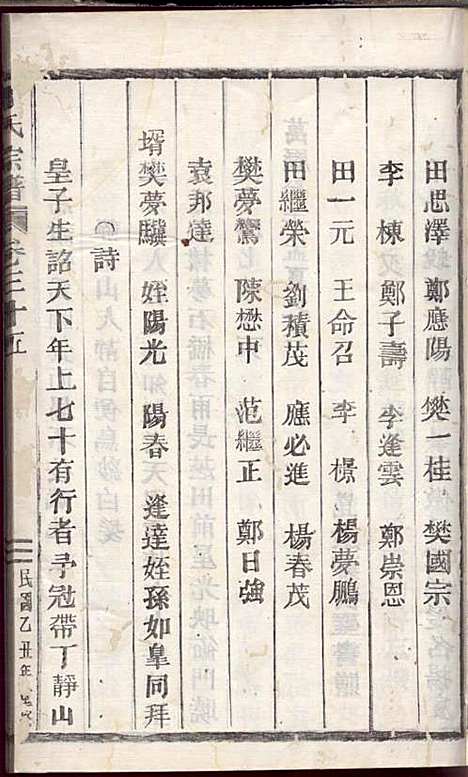 田思澤 鄭應陽 樊一桂 樊國宗
李棟 鄭子壽 李逢雲 鄭崇恩
田一元 王命召 李檙 楊夢鵬
田繼榮 劉積茂 應必進 楊春茂
樊夢鸞 陳懋中 范繼正 鄭日強
袁邦達
壻樊夢驥 姪陽光 陽春 逢達姪孫如皐同拜
〇詩
皇子生詔天下年上七十有行者予冠帶丁靜山
氏宗譜 卷之二十五 二 民國乙丑年